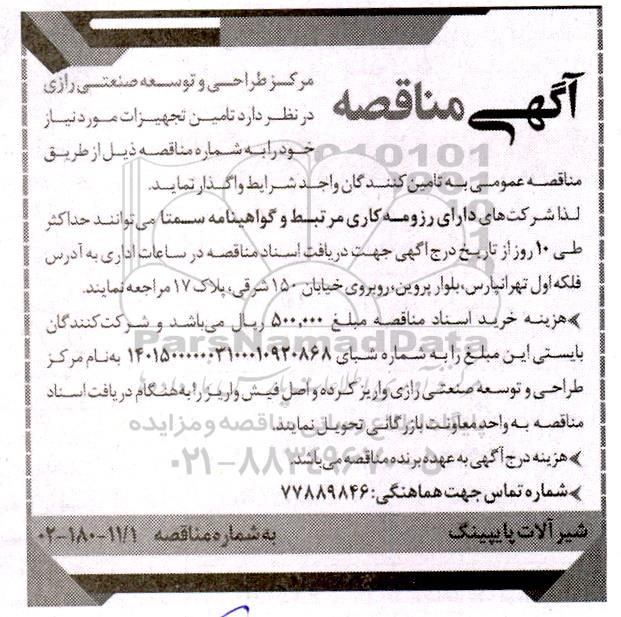 آگهی مناقصه
مرکز طراحی و توسعه صنعتی رازی
در نظر دارد تامین تجهیزات مورد نیاز
خود را به شماره مناقصه ذیل از طریق
مناقصه عمومی به تامین کنندگان واجد شرایط واگذار نماید.
لذا شرکت‌های دارای رزومه کاری مرتبط و گواهینامه سمتا می‌توانند حداکثر
طی ۱۰ روز از تاریخ درج آگهی جهت دریافت اسناد مناقصه در ساعات اداری به آدرس
فلکه اول تهرانپارس، بلوار پروین، روبروی خیابان ۱۵۰ شرقی، پلاک ۱۷ مراجعه نمایند.
هزینه خرید اسناد مناقصه مبلغ ۵۰۰,۰۰۰ ریال می‌باشد و شرکت‌کنندگان
بایستی این مبلغ را به شماره شبای به نام مرکز
ParsNamadData
طراحی و توسعه صنعتی رازی واریز کرده و اصل فیش واریز را به هنگام دریافت اسناد
مناقصه به واحد معاونت بازرگانی تحویل نمایند.
هزینه درج آگهی به عهده برنده مناقصه می‌باشد.
شماره تماس جهت هماهنگی: ۷۷۸۸۹۸۴۶
شیرآلات پایپینگ به شماره مناقصه ۱۱/۱-۱۸۰-۰۲